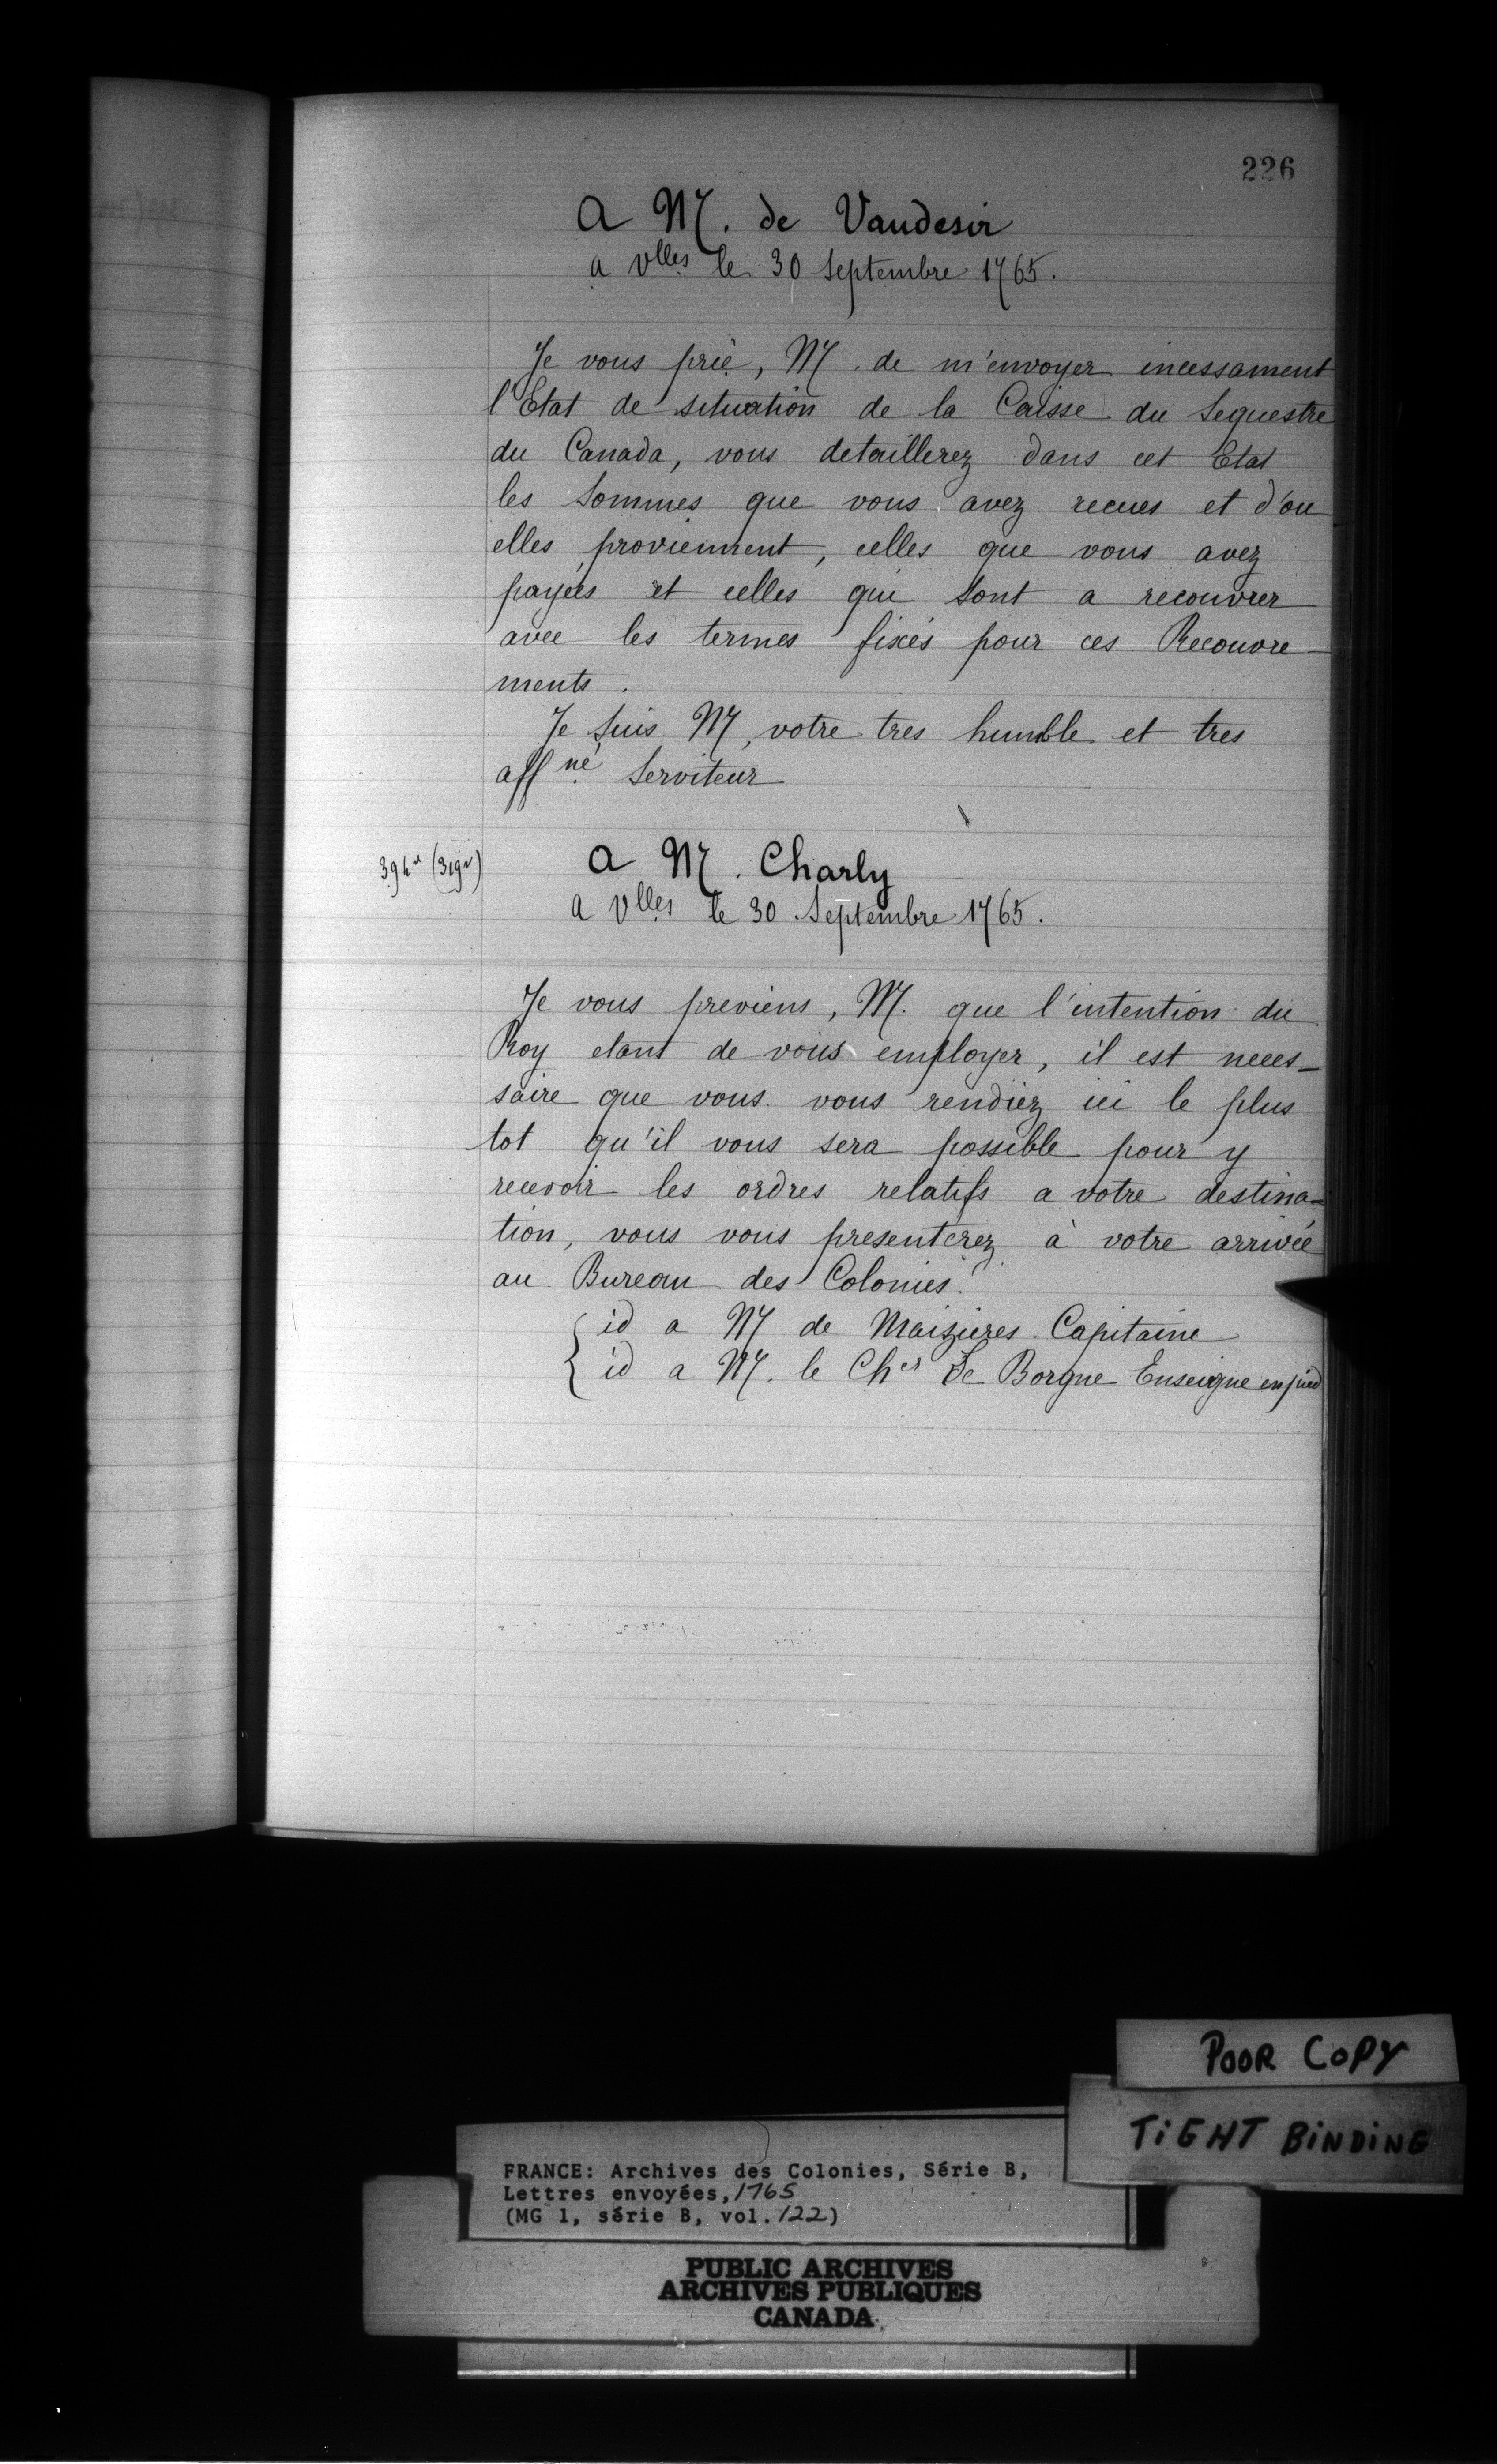 226
A M. de Vaudesir
a Vlles le 30 Septembre 1765.
Je vous prie, M. de m'envoyer incessament
l'Etat de situation de la Caisse du Sequestre
du Canada, vous detaillerez dans cet Etat
les Sommes que vous avez recues et d'ou
elles proviennent, celles que vous avez
payées et celles qui sont a recouvrer
avec les termes fixés pour ces Recouvre-
ments.
Je suis M, votre tres humble et tres
affné Serviteur
A M. Charly
a Vlles le 30 Septembre 1765.
Je vous previens, M. que l'intention du
Roy etant de vous employer, il est neces-
saire que vous vous rendiez ici le plus
tot qu'il vous sera possible pour y
recevoir les ordres relatifs a votre destina-
tion, vous vous presenterez à votre arrivée
au Bureau des Colonies.
id a M de Maizieres Capitaine
id a M. le Cher Le Borgne Enseigne en pied
POOR COPY
TIGHT BINDING
FRANCE: Archives des Colonies, Série B,
Lettres envoyées, 1765
(MG 1, série B, vol. 122)
PUBLIC ARCHIVES
ARCHIVES PUBLIQUES
CANADA